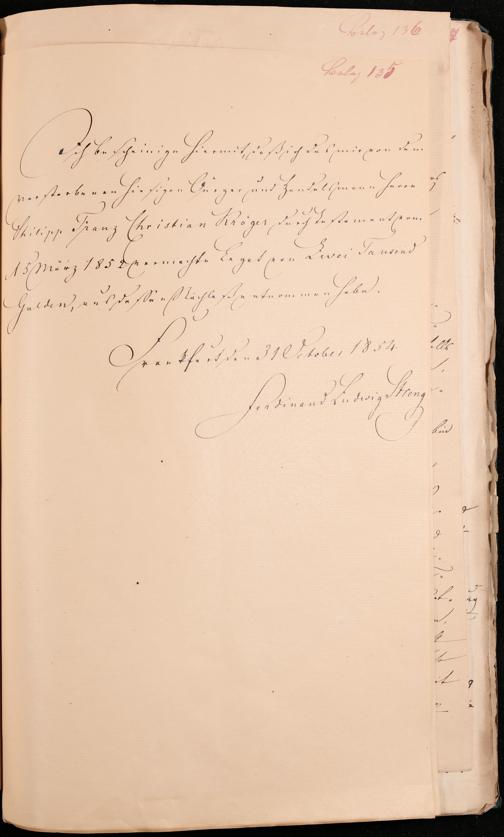 Beilag 136
Beilag 135
Ich bescheinige hiermit, daß ich das mir von dem
verstorbenen hiesigen Bürger und Handelsmann Herrn
Philipp Franz Christian Kröger durch Testament vom
15 März 1852 vermachte Legat von Zwei Tausend
Gulden, aus dessen Nachlaß entnommen habe.
Frankfurt den 31 October 1854
Ferdinand Ludwig Streng